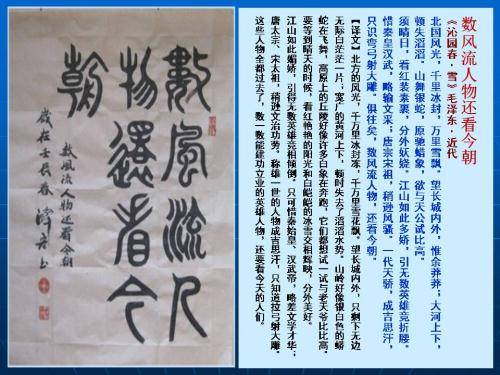 数风流人物还看今朝
《沁园春·雪》毛泽东·近代
北国风光，千里冰封，万里雪飘。望长城内外，惟余莽莽；大河上下，
顿失滔滔。山舞银蛇，原驰蜡象，欲与天公试比高。
须晴日，看红装素裹，分外妖娆。江山如此多娇，引无数英雄竞折腰。
惜秦皇汉武，略输文采；唐宗宋祖，稍逊风骚。一代天骄，成吉思汗，
只识弯弓射大雕。俱往矣，数风流人物，还看今朝。
【译文】北方的风光，千里冰封冻，千万里雪花飘。望长城内外，只剩下无边
无际白茫茫一片；宽广的黄河上下，顿时失去了滔滔水势。山岭好像银白色的蟒
蛇在飞舞，高原上的丘陵好像许多白象在奔跑，它们都想试一试与老天爷比比高。
要等到晴天的时候，看红艳艳的阳光和白皑皑的冰雪交相辉映，分外美好。
江山如此媚娇，引得无数英雄竞相倾倒。只可惜秦始皇、汉武帝，略差文学才华；
唐太宗、宋太祖，稍逊文治功劳。称雄一世的人物成吉思汗，只知道拉弓射大雕。
这些人物全都过去了，数一数能建功立业的英雄人物，还要看今天的人们。
數風流人
物還看今
朝
数风流人物还看今朝
歲在壬辰春